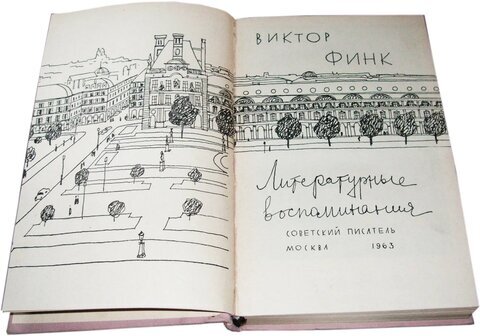 ВИКТОР
ФИНК
Литературные
воспоминания
СОВЕТСКИЙ ПИСАТЕЛЬ
МОСКВА 1963